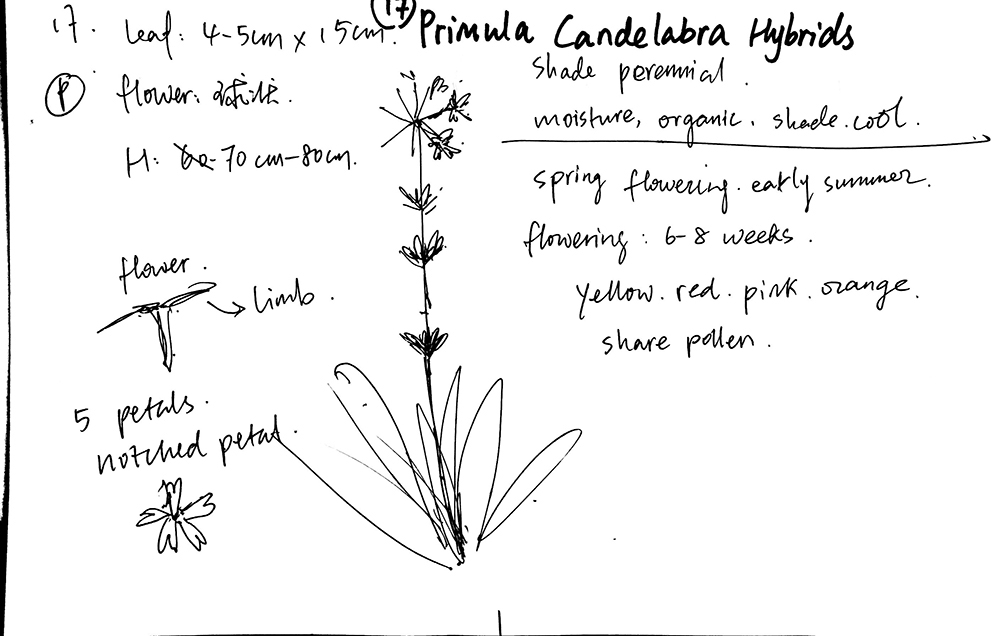 17. Leaf: 4-5cm x 15cm.
17 Primula Candelabra Hybrids
P flower:
H: 70cm-80cm.
shade perennial.
moisture, organic. shade. cool.
spring flowering. early summer.
flowering: 6-8 weeks.
yellow. red. pink. orange.
share pollen.
flower.
limb.
5 petals.
notched petal.